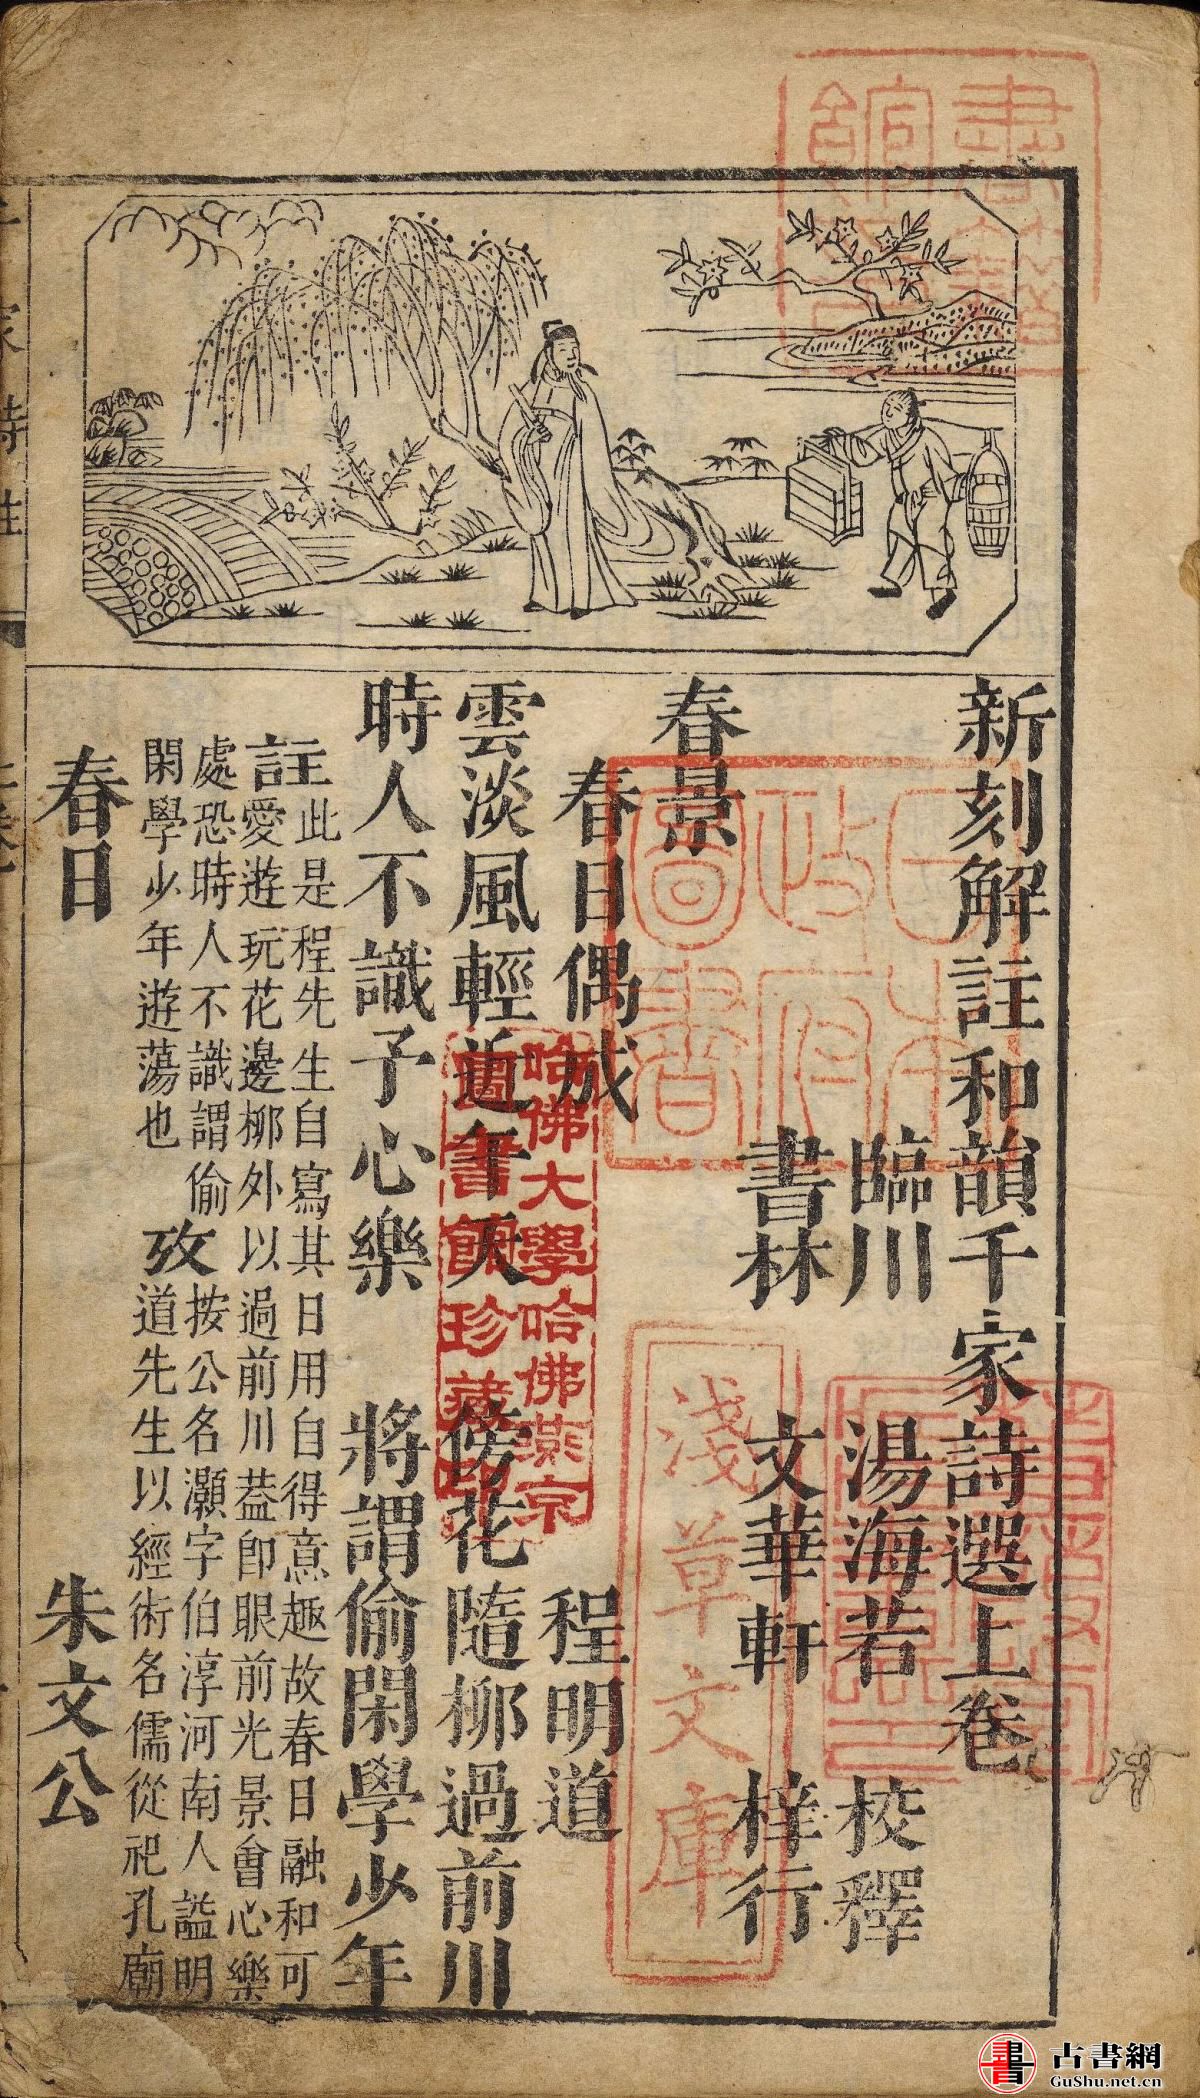 新刻解註和韻千家詩選上卷
臨川 湯海若 校釋
書林 文華軒 梓行
春景
春日偶成 程明道
雲淡風輕近午天 傍花隨柳過前川
時人不識子心樂 將謂偷閑學少年
註 此是程先生自寫其日用自得意趣故春日融和可
愛遊玩花邊柳外以過前川葢即眼前光景會心樂
處恐時人不識謂偷
閑學少年遊蕩也
攷 按公名灝字伯淳河南人謚明
道先生以經術名儒從祀孔廟
春日 朱文公
哈佛大學哈佛燕京
圖書館珍藏印
淺草文庫
書 古書網
GuShu.net.cn